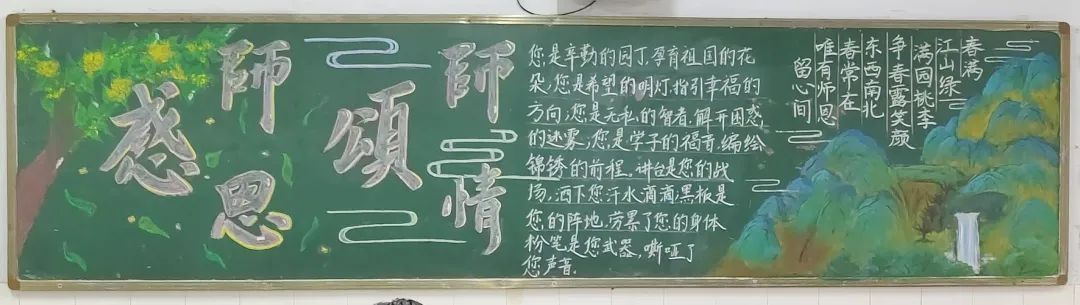 感
師恩
頌
師情
您是辛勤的园丁,孕育祖国的花
朵,您是希望的明灯,指引幸福的
方向;您是无私的智者,解开困惑
的迷雾,您是学子的福音,编绘
锦绣的前程。讲台是您的战
场,洒下您汗水滴滴;黑板是
您的阵地,劳累了您的身体
粉笔是您武器,嘶哑了
您声音.
春满
江山绿
满园桃李
争春露笑颜
东西南北
春常在
唯有师恩
留心间